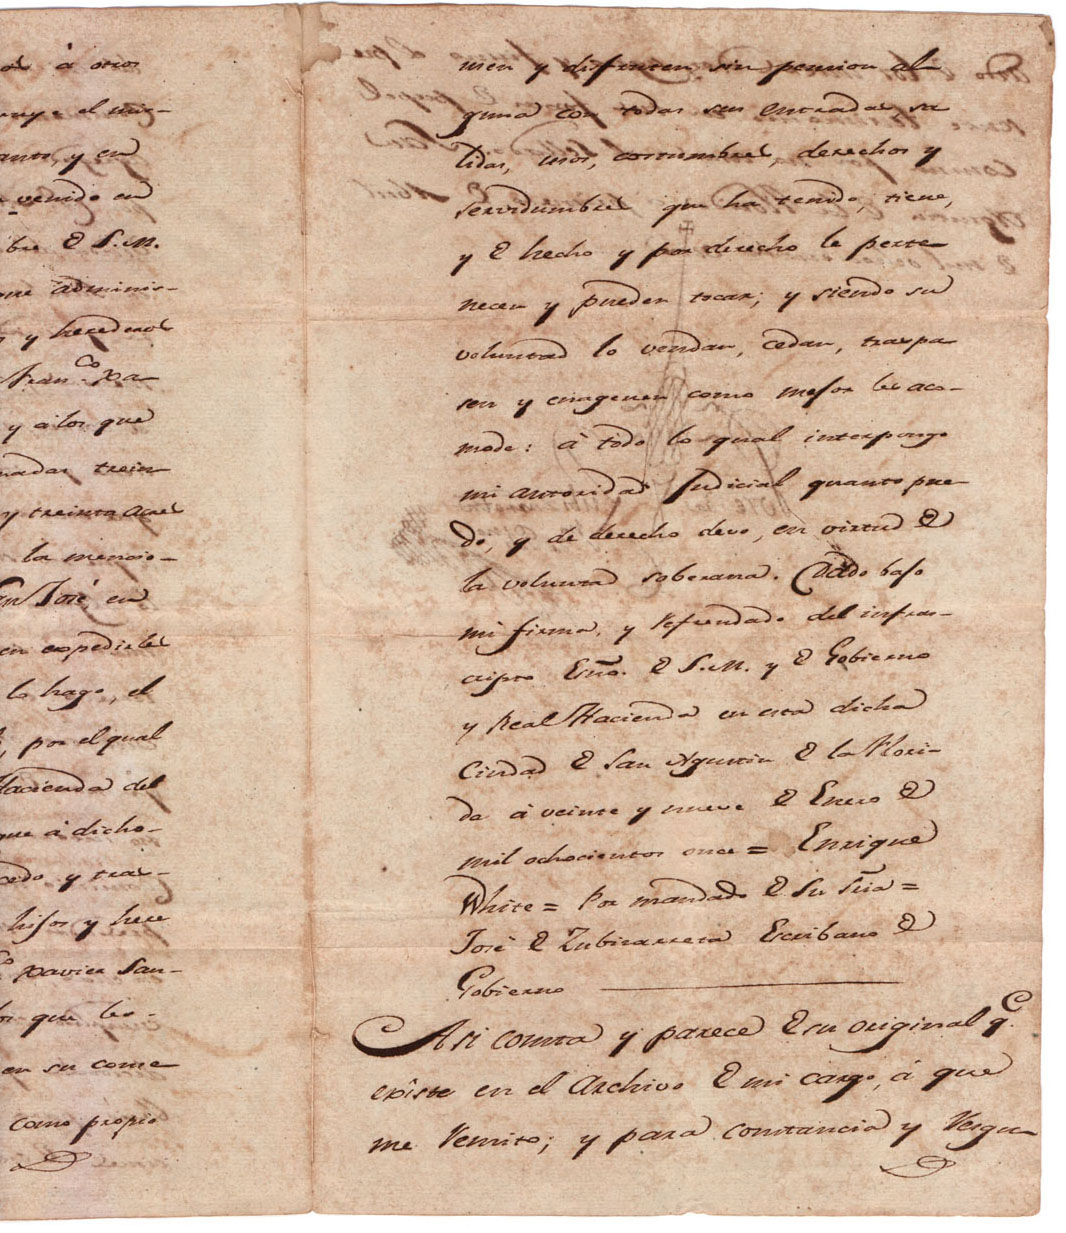 á otros
ruye el mig-
y en
venido en
bre D S.M.
adminis-
y herederos
Fran.co Xa-
y á los que
nadas trein-
y treinta acres
la mencio-
San José en
en expedirles
lo hago, el
por el qual
Hacienda del
que á dicho-
cedo y tras-
hijos y here
Xavier San-
que los-
en su come
como propio
men y disfruten sin pension al
guna con todas sus entradas sa
lidas, usos, costumbres, derechos y
servidumbres que ha tenido, tiene,
y D hecho y por derecho le perte-
necen y pueden tocar; y siendo su
voluntad lo vendan, cedan, traspa
sen y enagenen como mejor les aco-
mode: á todo lo qual interpongo
mi autoridad Judicial quanto pue-
do, y de derecho devo, en virtud D
la voluntad soberana. Dado bajo
mi firma, y refrendado del infras-
cripto Esño. D S.M. y D Gobierno
y Real Hacienda en esta dicha
Ciudad D San Agustin D la Flori-
da á veinte y nueve D Enero D
mil ochocientos once = Enrique
White = Por mandado D Su Sria =
José D Zubizarreta Escribano D
Gobierno
Asi consta y parece D su original q.e
existe en el Archivo D mi cargo, á que
me remito; y para constancia y resgu-